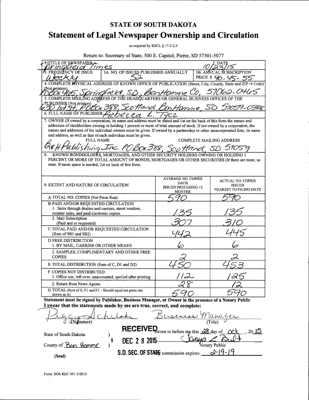 STATE OF SOUTH DAKOTA
Statement of Legal Newspaper Ownership and Circulation
as required by SDCL § 17-2-2.3
Return to: Secretary of State, 500 E. Capitol, Pierre, SD 57501-5077
1. TITLE OF NEWSPAPER
Springfield Times
2. DATE
10/23/15
3. FREQUENCY OF ISSUE
Weekly
3A. NO. OF ISSUES PUBLISHED ANNUALLY
52
3B. ANNUAL SUBSCRIPTION
PRICE $ 40-45-55
4. COMPLETE MAILING ADDRESS OF KNOWN OFFICE OF PUBLICATION (Street, City, County, State and ZIP+4 Code)
(Not printers)
PO Box 465, Springfield, SD, Bon Homme Co. 57062-0465
5. COMPLETE MAILING ADDRESS OF THE HEADQUARTERS OR GENERAL BUSINESS OFFICES OF THE
6. FULL NAME OF PUBLISHER: Rebecca L. Tycz
7. OWNER (If owned by a corporation, its name and address must be stated and list on the back of this form the names and
addresses of stockholders owning or holding 1 percent or more of total amount of stock. If not owned by a corporation, the
names and addresses of the individual owners must be given. If owned by a partnership or other unincorporated firm, its name
and address, as well as that of each individual must be given.
FULL NAME
COMPLETE MAILING ADDRESS
Publishing Inc. PO Box 388, Scotland, SD 57059
8. KNOWN BONDHOLDERS, MORTGAGES, AND OTHER SECURITY HOLDERS OWNING OR HOLDING 1
PERCENT OR MORE OF TOTAL AMOUNT OF BONDS, MORTGAGES OR OTHER SECURITIES (If there are none, so
state. If more space is needed, list on back of this form.
9. EXTENT AND NATURE OF CIRCULATION
AVERAGE NO. COPIES
EACH
ISSUED PRECEDING 12
MONTHS
ACTUAL NO. COPIES
ISSUED
NEAREST TO FILING DATE
A. TOTAL NO. COPIES (Net Press Run)
590
590
B. PAID AND/OR REQUESTED CIRCULATION
1. Sales through dealers and carriers, street vendors,
counter sales, and paid electronic copies.
135
135
2. Mail Subscription
(Paid and/or requested)
307
310
C. TOTAL PAID AND/OR REQUESTED CIRCULATION
(Sum of 9B1 and 9B2)
442
445
D. FREE DISTRIBUTION
1. BY MAIL, CARRIER OR OTHER MEANS
6
6
2. SAMPLES, COMPLIMENTARY AND OTHER FREE
COPIES
2
2
E. TOTAL DISTRIBUTION (Sum of C, D1 and D2)
450
453
F. COPIES NOT DISTRIBUTED
1. Office use, left over, unaccounted, spoiled after printing
112
125
2. Return from News Agents
28
12
G. TOTAL (Sum of E, F1 and F2 - Should equal net press run
shown in A)
590
590
Statement must be signed by Publisher, Business Manager, or Owner in the presence of a Notary Public
I swear that the statements made by me are true, correct, and complete:
Business Manager
(Signature)
(Title)
RECEIVED
State of South Dakota )
Sworn to before me this 28 day of Oct, 20 15
§
DEC 28 2015
County of Bon Homme )
Notary Public
(Seal)
S.D. SEC. OF STATE
commission expires: 2-19-19